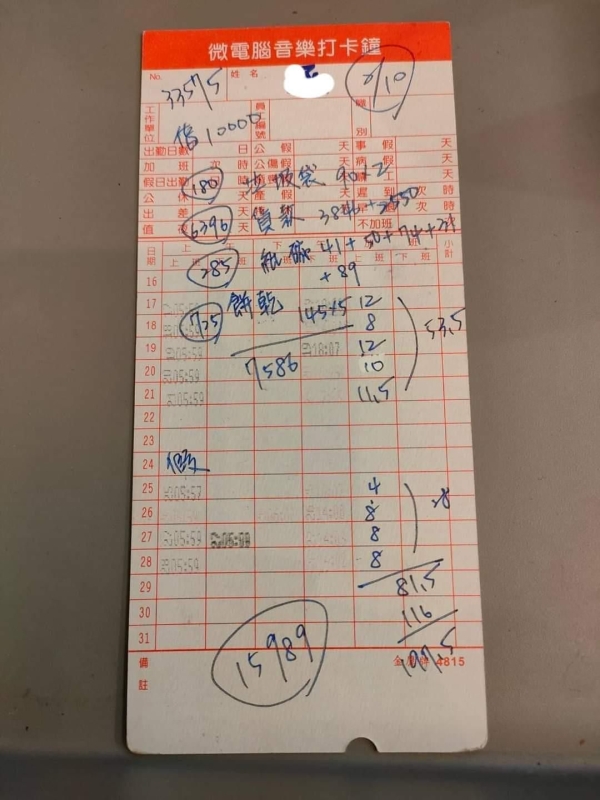 微電腦音樂打卡鐘
No. 33575 姓名 2/10
工作單位 員工編號 職別
借10000
出勤日數 日 公假 天 事假 天
加班 次 時 公傷假 天 病假 天
假日出勤 天
公休 天 產假 天 遲到 次 時
出差 天 次 時
值 天 不加班
180 垃圾袋 90×2
6396 貨款 3846+2550
285 紙碗 41+50+74+31
+89
725 餅乾 145×5
7586
日期 上班 下班 上班 下班 上班 下班 小計
16
17 12
18 8
19 05:59 18:07 12 53.5
20 05:59 10
21 05:59 11.5
22
23
24
25 05:57 4
26 8 28
27 05:59 05:59 8
28 05:59 8
29 81.5
30 116
31 197.5
15989
備註
4815